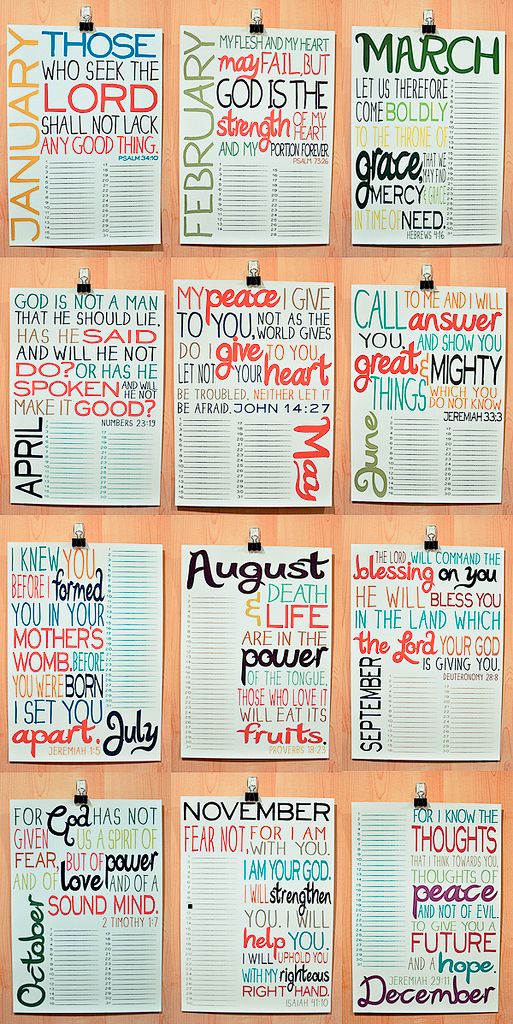 JANUARY
THOSE
WHO SEEK THE
LORD
SHALL NOT LACK
ANY GOOD THING.
PSALM 34:10
FEBRUARY
MY FLESH AND MY HEART
may FAIL, BUT
GOD IS THE
strength OF MY
HEART
AND MY PORTION FOREVER.
PSALM 73:26
MARCH
LET US THEREFORE
COME BOLDLY
TO THE THRONE OF
grace, THAT WE
MAY FIND
MERCY & GRACE
IN TIME OF NEED.
HEBREWS 4:16
GOD IS NOT A MAN
THAT HE SHOULD LIE,
HAS HE SAID
AND WILL HE NOT
DO? OR HAS HE
SPOKEN AND WILL
HE NOT
MAKE IT GOOD?
NUMBERS 23:19
APRIL
MY peace I GIVE
TO YOU, NOT AS THE
WORLD GIVES
DO I give TO YOU.
LET NOT YOUR heart
BE TROUBLED, NEITHER LET IT
BE AFRAID. JOHN 14:27
May
CALL TO ME AND I WILL
answer
YOU, AND SHOW YOU
great & MIGHTY
THINGS WHICH YOU
DO NOT KNOW
JEREMIAH 33:3
June
I KNEW YOU
BEFORE I formed
YOU IN YOUR
MOTHER'S
WOMB. BEFORE
YOU WERE BORN
I SET YOU
apart.
JEREMIAH 1:5
July
August
DEATH
& LIFE
ARE IN THE
power
OF THE TONGUE,
THOSE WHO LOVE IT
WILL EAT ITS
fruits.
PROVERBS 18:23
THE LORD WILL COMMAND THE
blessing on you
HE WILL BLESS YOU
IN THE LAND WHICH
the Lord YOUR GOD
IS GIVING YOU.
DEUTERONOMY 28:8
SEPTEMBER
FOR God HAS NOT
GIVEN US A SPIRIT OF
FEAR, BUT OF power
AND OF love AND OF A
SOUND MIND.
2 TIMOTHY 1:7
October
NOVEMBER
FEAR NOT, FOR I AM
WITH YOU.
I AM YOUR GOD.
I WILL strengthen
YOU. I WILL
help YOU.
I WILL UPHOLD YOU
WITH MY righteous
RIGHT HAND.
ISAIAH 41:10
FOR I KNOW THE
THOUGHTS
THAT I THINK TOWARDS YOU,
THOUGHTS OF
peace
AND NOT OF EVIL.
TO GIVE YOU A
FUTURE
AND A hope.
JEREMIAH 29:11
December